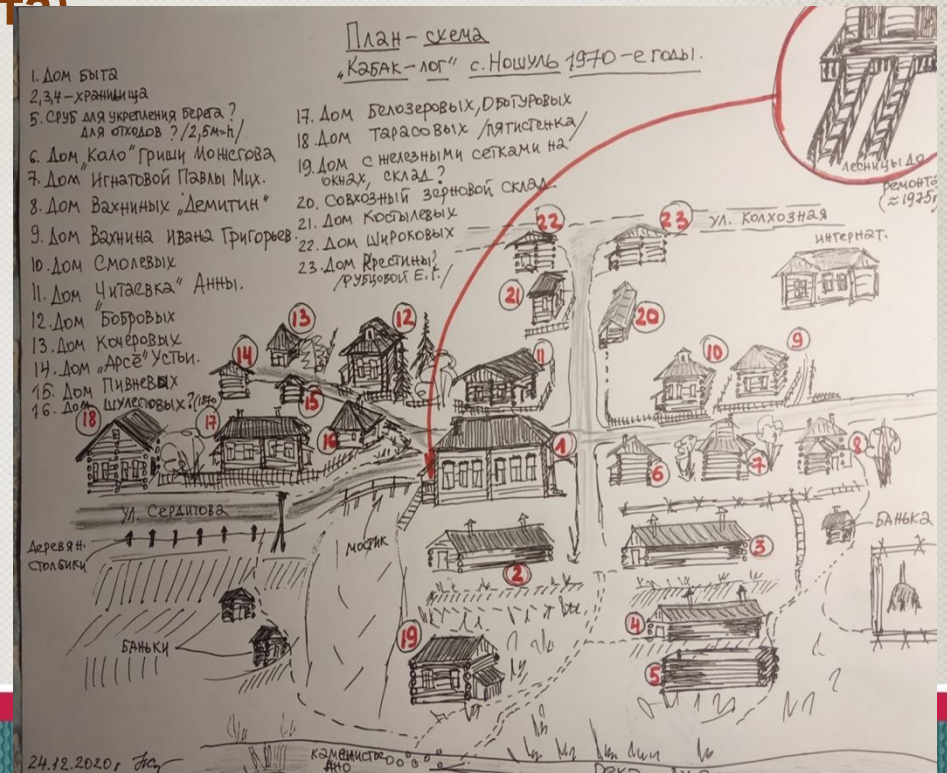 План-схема
"Кабак-лог" с. Ношуль 1970-е годы.
1. Дом быта
2,3,4-хранилища
5. Сруб для укрепления берега?
для отходов? /2,5м=h/
6. Дом "Кало" Гриши Можегова
7. Дом Игнатовой Павлы Мих.
8. Дом Вахниных "Демитин"
9. Дом Вахнина Ивана Григорьев.
10. Дом Смолевых
11. Дом "Читаевка" Анны.
12. Дом Бобровых
13. Дом Кочеровых
14. Дом "Арсё" Устьи.
15. Дом Пивневых
16. Дом Шулеповых?
17. Дом Белозеровых, Оботуровых
18. Дом Тарасовых /пятистенка/
19. Дом с железными сетками на
окнах, склад?
20. Совхозный зерновой склад
21. Дом Костылевых
22. Дом Широковых
23. Дом Крестины?
/Рубцовой Е.Г./
лесницы до
ремонта
(≈1975г)
ул. Колхозная
интернат.
22
23
21
20
13
12
14
11
10
9
15
18
17
16
1
6
7
8
ул. Сердитова
Деревян.
столбики
мостик
банька
2
3
4
баньки
19
5
24.12.2020г
каменистое
дно
Река